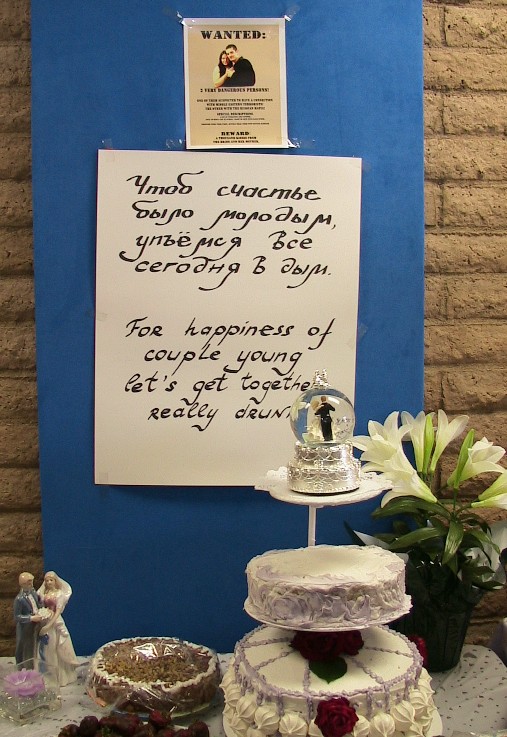 WANTED:
2 VERY DANGEROUS PERSONS!
REWARD:
Чтоб счастье
было молодым,
упъёмся все
сегодня в дым.
For happiness of
couple young
let's get together
really drunk